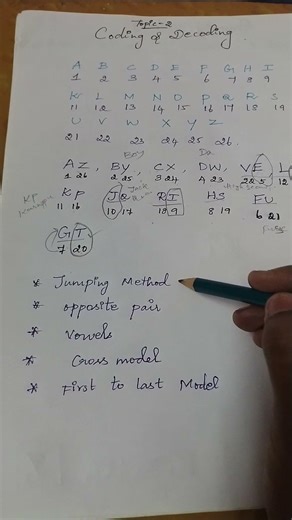 Topic-2
Coding & Decoding
A B C D E F G H I
1 2 3 4 5 6 7 8 9
K L M N O P Q R S
11 12 13 14 15 16 17 18 19
U V W X Y Z
21 22 23 24 25 26
Boy
AZ, BY, CX, DW, VE, L
1 26 2 25 3 24 4 23 22 5 12
KP JQ RI HS FU
11 16 10 17 18 9 8 19 6 21
GT
7 20
* Jumping Method
* opposite pair
* Vowels
* Cross model
* First to last Model